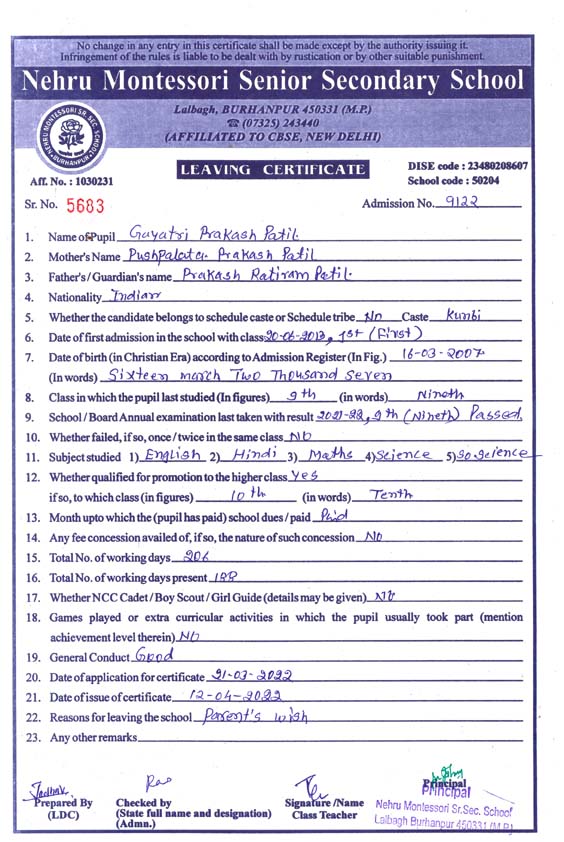 No change in any entry in this certificate shall be made except by the authority issuing it.
Infringement of the rules is liable to be dealt with by rustication or by other suitable punishment.
Nehru Montessori Senior Secondary School
Lalbagh, BURHANPUR 450331 (M.P.)
☎ (07325) 243440
(AFFILIATED TO CBSE, NEW DELHI)
NEHRU MONTESSORI SR. SEC. SCHOOL
BURHANPUR
LEAVING CERTIFICATE
DISE code : 23480208607
Aff. No. : 1030231 School code : 50204
Sr. No. 5683 Admission No. 9122
1. Name of Pupil Gayatri Prakash Patil
2. Mother's Name Pushpalata Prakash Patil
3. Father's / Guardian's name Prakash Ratiram Patil
4. Nationality Indian
5. Whether the candidate belongs to schedule caste or Schedule tribe No Caste Kunbi
6. Date of first admission in the school with class 20-06-2013, 1st (First)
7. Date of birth (in Christian Era) according to Admission Register (In Fig.) 16-03-2007
(In words) Sixteen march Two Thousand Seven
8. Class in which the pupil last studied (In figures) 9th (in words) Nineth
9. School / Board Annual examination last taken with result 2021-22, 9th (Nineth) Passed
10. Whether failed, if so, once / twice in the same class No
11. Subject studied 1) English 2) Hindi 3) Maths 4) Science 5) So. Science
12. Whether qualified for promotion to the higher class Yes
if so, to which class (in figures) 10th (in words) Tenth
13. Month upto which the (pupil has paid) school dues / paid Paid
14. Any fee concession availed of, if so, the nature of such concession No
15. Total No. of working days 206
16. Total No. of working days present 188
17. Whether NCC Cadet / Boy Scout / Girl Guide (details may be given) No
18. Games played or extra curricular activities in which the pupil usually took part (mention
achievement level therein) No
19. General Conduct Good
20. Date of application for certificate 21-03-2022
21. Date of issue of certificate 12-04-2022
22. Reasons for leaving the school Parent's wish
23. Any other remarks
Jadhav Rao
Prepared By Checked by Signature /Name Principal
(LDC) (State full name and designation) Class Teacher
(Admn.)
Principal
Nehru Montessori Sr.Sec. School
Lalbagh Burhanpur 450331 (M.P.)